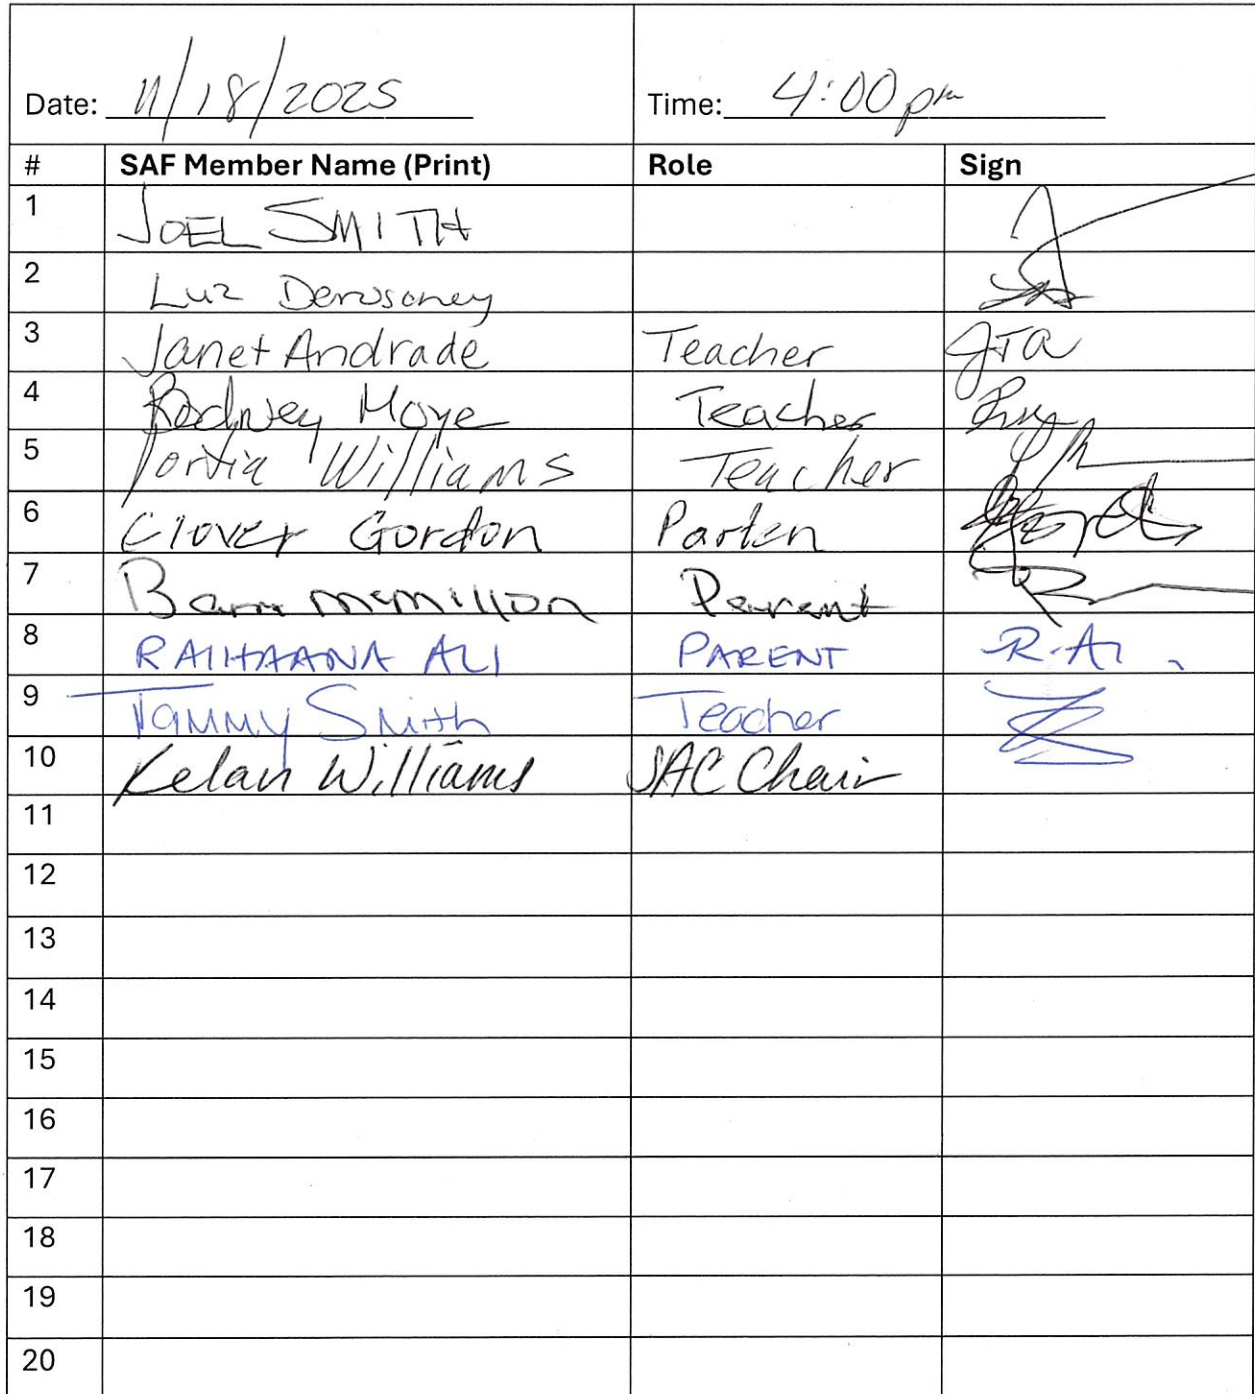 Date: 11/18/2025 Time: 4:00 pm
# SAF Member Name (Print) Role Sign
1 JOEL SMITH
2 Luz
3 Janet Andrade Teacher JTA
4 Rodney Moye Teacher
5 Portia Williams Teacher
6 Clover Gordon Parten
7 McMillon Parent
8 RAIHAANA ALI PARENT R.A
9 Tammy Smith Teacher
10 Kelan Williams SAC Chair
11
12
13
14
15
16
17
18
19
20